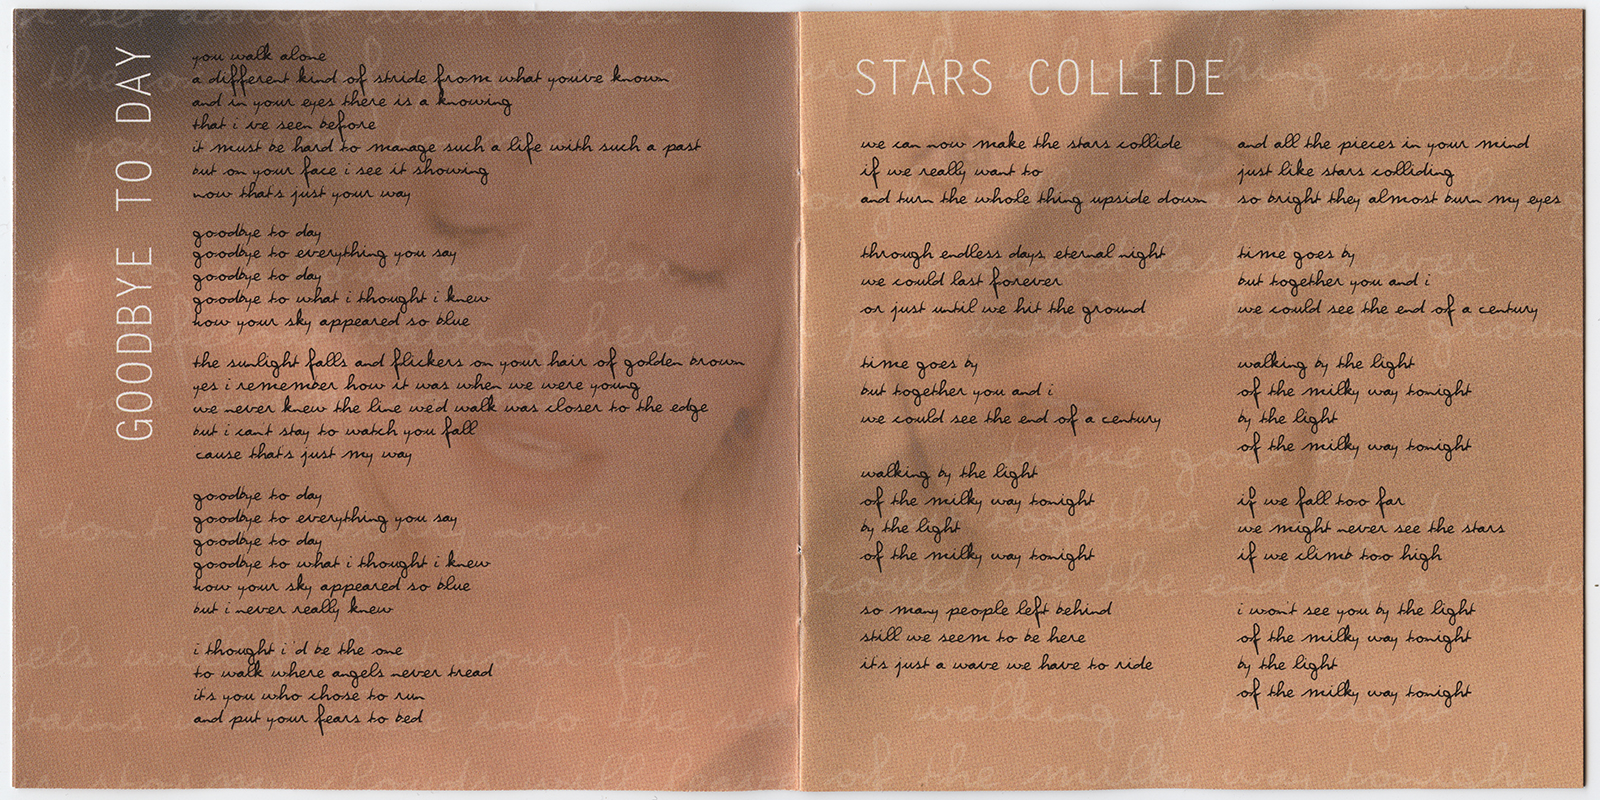 GOODBYE TO DAY
you walk alone
a different kind of stride from what you've known
and in your eyes there is a knowing
that i ve seen before
it must be hard to manage such a life with such a past
but on your face i see it showing
now that's just your way
goodbye to day
goodbye to everything you say
goodbye to day
goodbye to what i thought i knew
how your sky appeared so blue
the sunlight falls and flickers on your hair of golden brown
yes i remember how it was when we were young
we never knew the line we'd walk was closer to the edge
but i can't stay to watch you fall
'cause that's just my way
goodbye to day
goodbye to everything you say
goodbye to day
goodbye to what i thought i knew
how your sky appeared so blue
but i never really knew
i thought i'd be the one
to walk where angels never tread
it's you who chose to run
and put your fears to bed
STARS COLLIDE
we can now make the stars collide
if we really want to
and turn the whole thing upside down
through endless days, eternal night
we could last forever
or just until we hit the ground
time goes by
but together you and i
we could see the end of a century
walking by the light
of the milky way tonight
by the light
of the milky way tonight
so many people left behind
still we seem to be here
it's just a wave we have to ride
and all the pieces in your mind
just like stars colliding
so bright they almost burn my eyes
time goes by
but together you and i
we could see the end of a century
walking by the light
of the milky way tonight
by the light
of the milky way tonight
if we fall too far
we might never see the stars
if we climb too high
i won't see you by the light
of the milky way tonight
by the light
of the milky way tonight